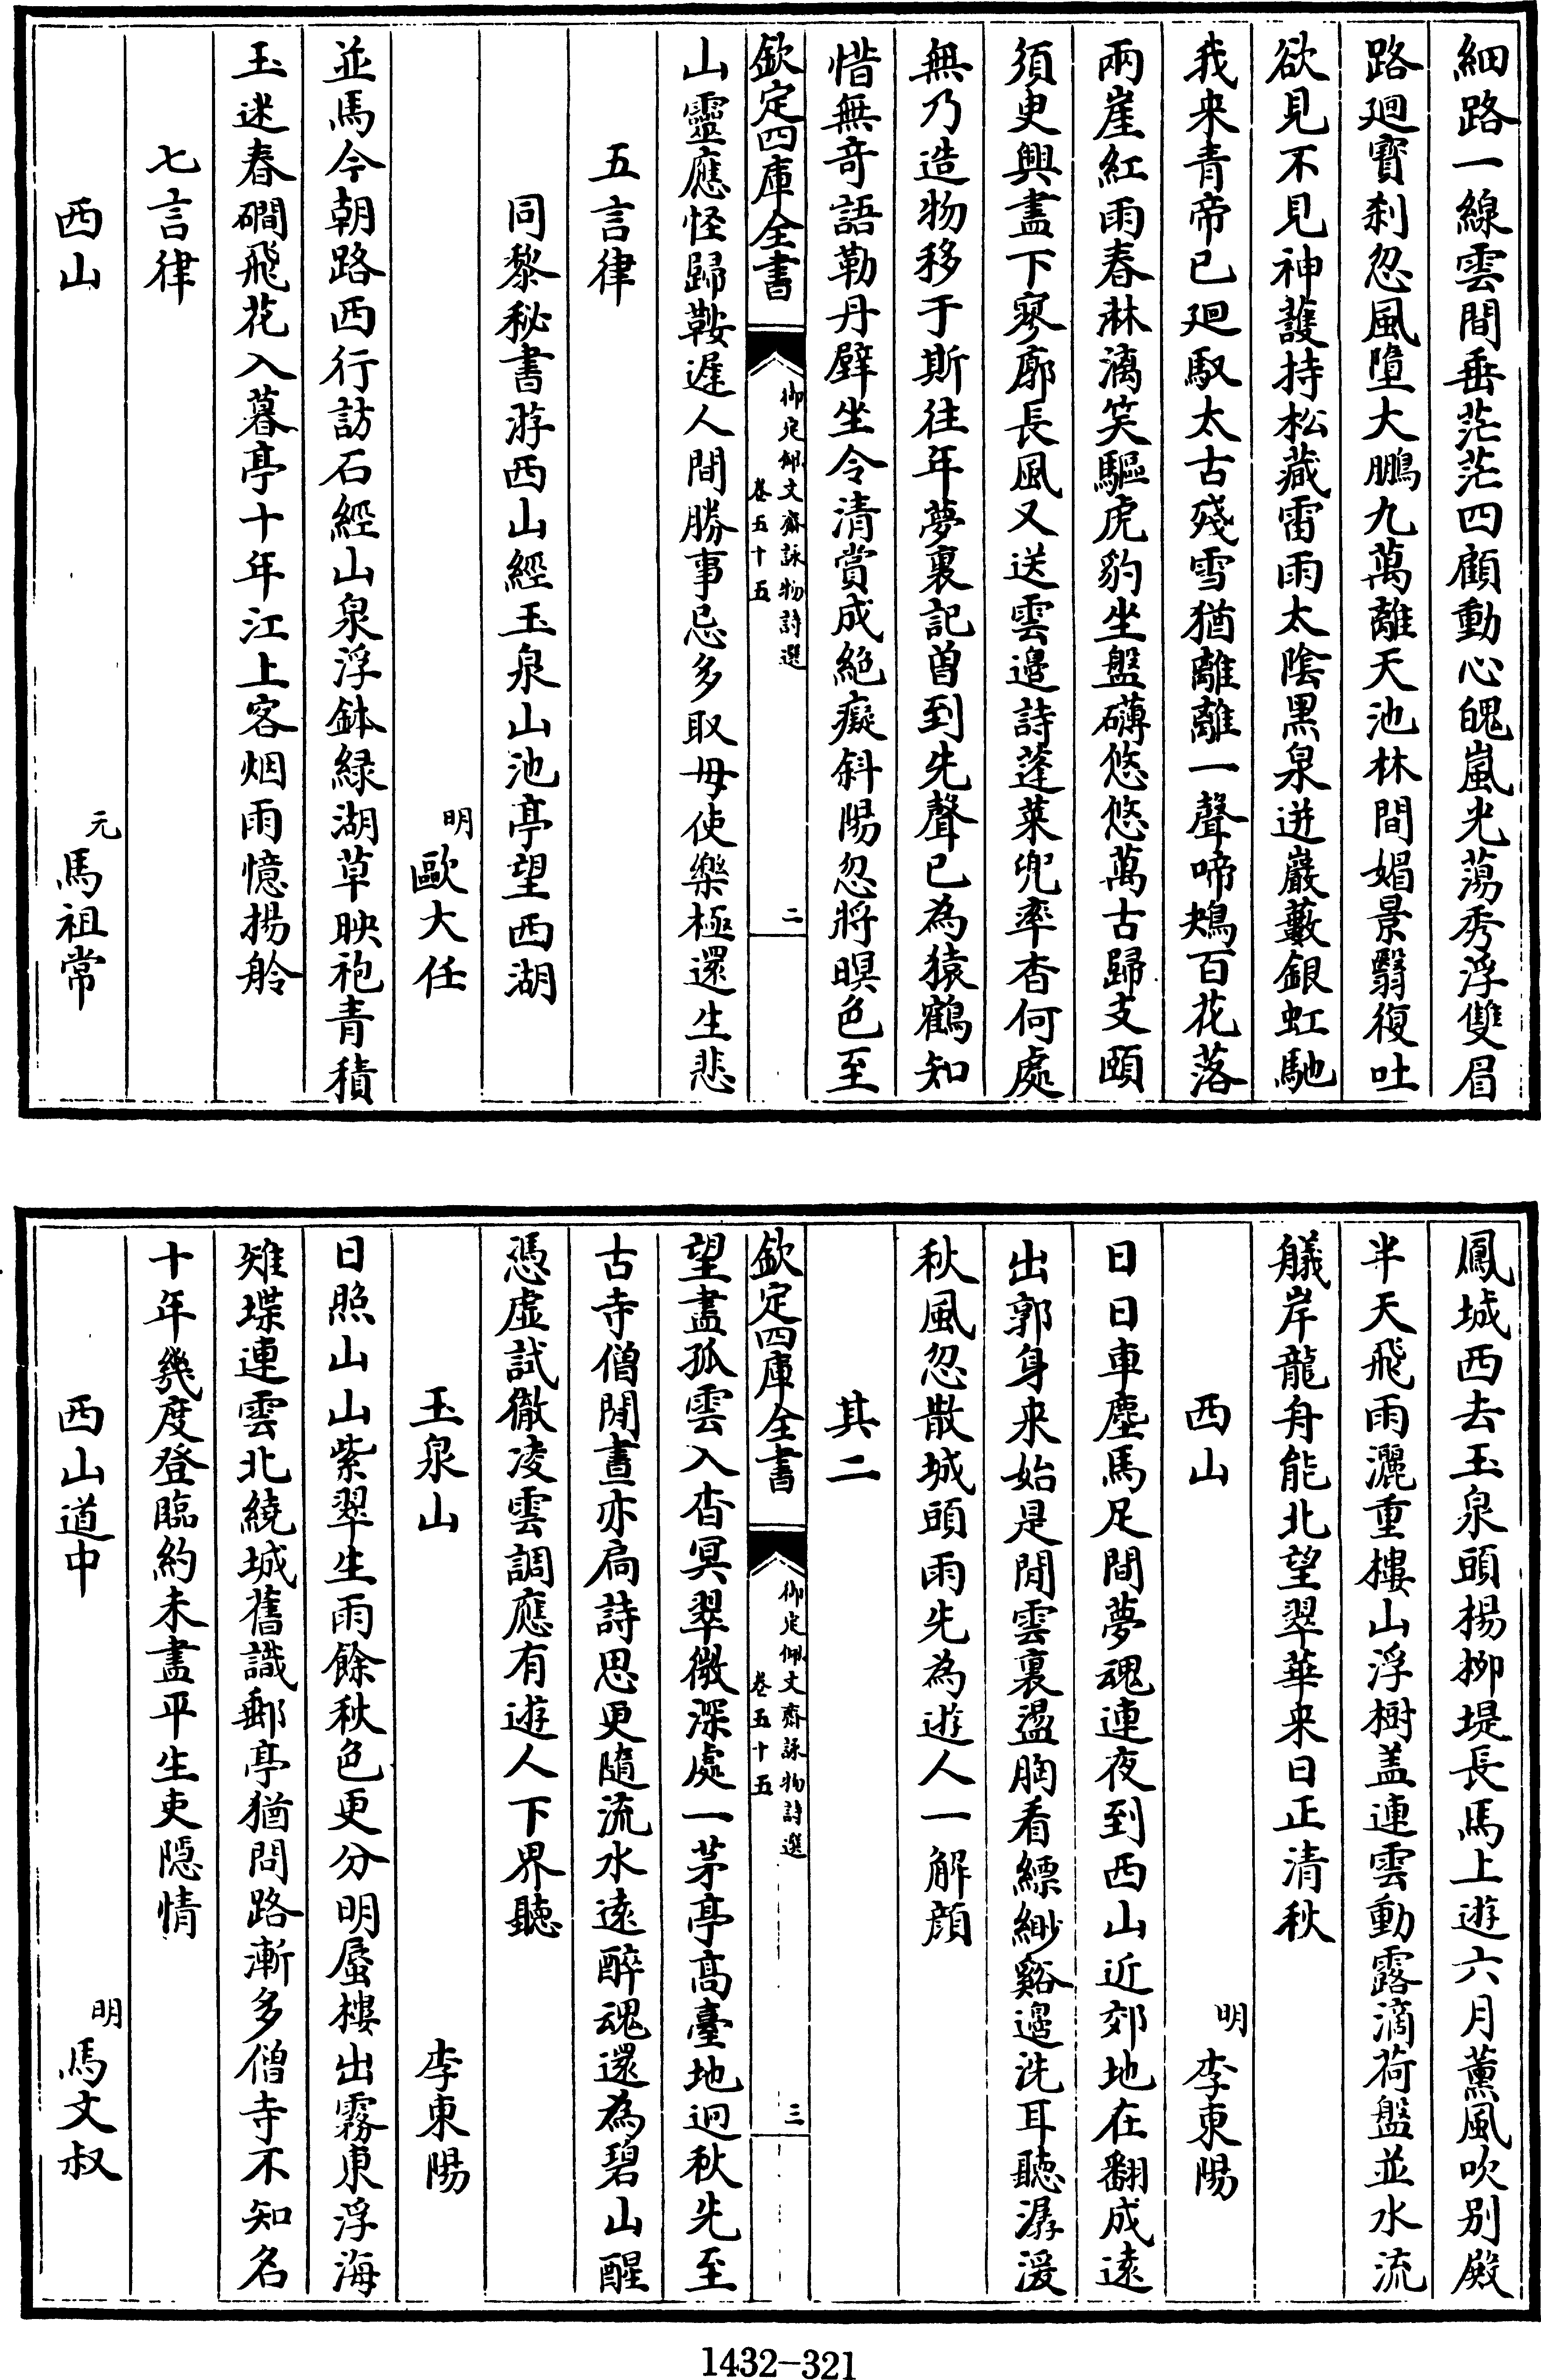 細路一線雲間垂茫茫四顧動心魄嵐光蕩秀浮雙眉
路廻寳刹忽風墮大鵬九萬離天池林間媚景翳復吐
欲見不見神護持松藏雷雨太陰黒泉迸巖藪銀虹馳
我来青帝已廻馭太古殘雪猶離離一聲啼鴂百花落
兩崖紅雨春淋漓笑驅虎豹坐盤礴悠悠萬古歸支頤
須㬰興盡下寥廓長風又送雲邉詩蓬莱兜率杳何處
無乃造物移于斯往年夢裏記曽到先聲已為猿鶴知
惜無竒語勒丹壁坐令清賞成絶癡斜陽忽將暝色至
欽定四庫全書
御定佩文齋詠物詩選
卷五十五
二
山靈應怪歸鞍遲人間勝事忌多取毋使樂極還生悲
五言律
同黎秘書游西山經玉泉山池亭望西湖
明歐大任
並馬今朝路西行訪石經山泉浮鉢緑湖草映袍青積
玉迷春磵飛花入暮亭十年江上客烟雨憶揚舲
七言律
西山
元馬祖常
鳳城西去玉泉頭楊栁堤長馬上遊六月薫風吹别殿
半天飛雨灑重樓山浮樹盖連雲動露滴荷盤並水流
艤岸龍舟能北望翠華来日正清秋
西山
明李東陽
日日車塵馬足間夢魂連夜到西山近郊地在翻成逺
出郭身来始是閒雲裏盪胸看縹緲谿邉洗耳聽潺湲
秋風忽散城頭雨先為遊人一解顔
其二
欽定四庫全書
御定佩文齋詠物詩選
卷五十五
三
望盡孤雲入杳冥翠微深處一茅亭髙臺地迥秋先至
古寺僧閒晝亦扃詩思更隨流水逺醉魂還為碧山醒
憑虚試徹凌雲調應有遊人下界聽
玉泉山
李東陽
日照山山紫翠生雨餘秋色更分明蜃樓出霧東浮海
雉堞連雲北繞城舊識郵亭猶問路漸多僧寺不知名
十年幾度登臨約未盡平生吏隠情
西山道中
明馬文叔
1432—321